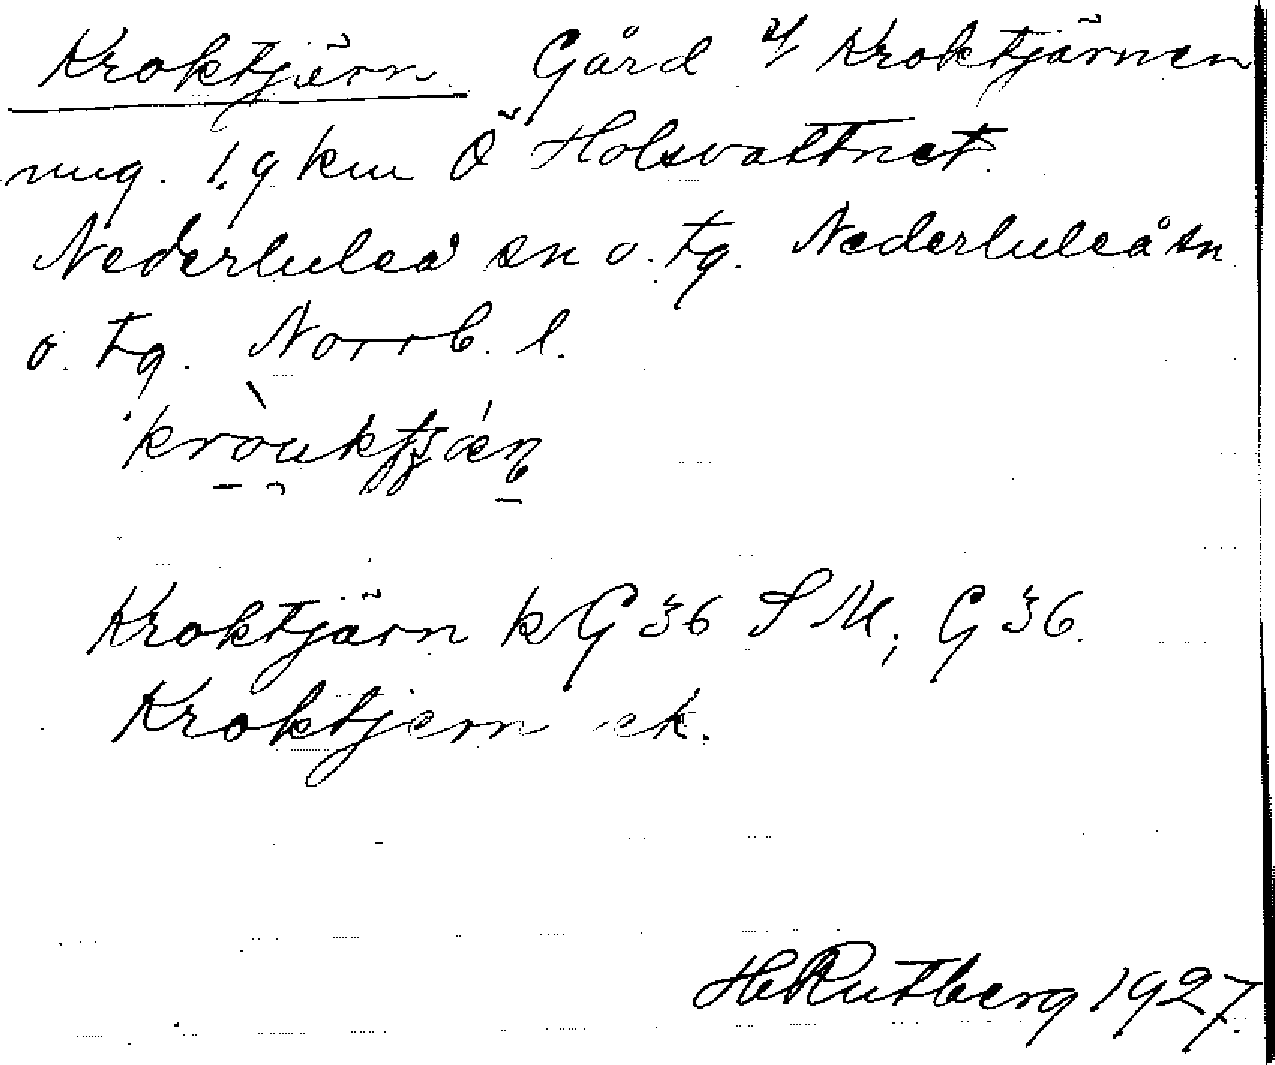 Kroktjärn Gård v/ Kroktjärnen
ung. 1.9 km Ö Holsvattnet.
Nederluleå sn o. tg. Nederluleå sn
o. tg. Norrb. l.
Kroktjärn k G 36 S M; G 36.
Kroktjern ek.
H Rutberg 1927.